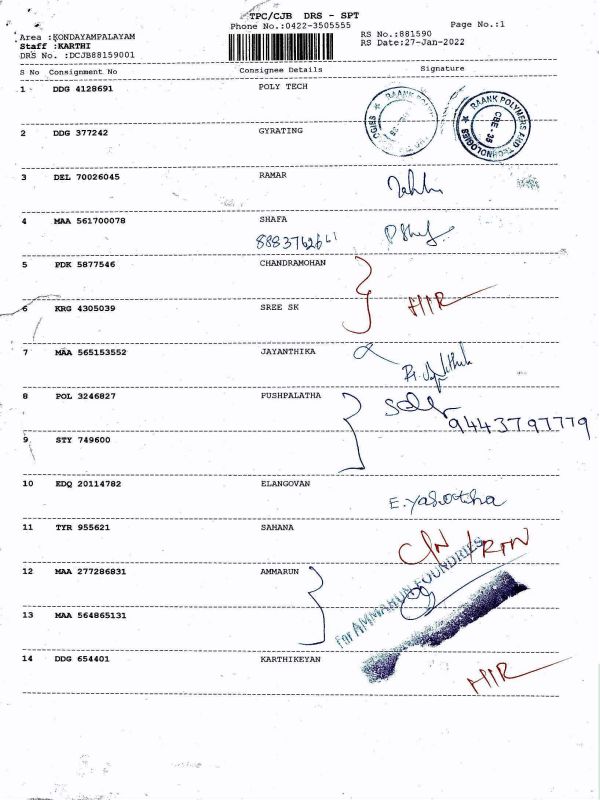 TPC/CJB DRS - SPT
Phone No.:0422-3505555 Page No.:1
Area :KONDAYAMPALAYAM RS No.:881590
Staff :KARTHI RS Date:27-Jan-2022
DRS No. :DCJB88159001
S No Consignment No Consignee Details Signature
1 DDG 4128691 POLY TECH
RAANK POLYMERS AND TECHNOLOGIES
CBE - 35
2 DDG 377242 GYRATING
3 DEL 70026045 RAMAR
4 MAA 561700078 SHAFA
5 PDK 5877546 CHANDRAMOHAN
6 KRG 4305039 SREE SK
7 MAA 565153552 JAYANTHIKA
8 POL 3246827 PUSHPALATHA
9443797779
9 STY 749600
10 EDQ 20114782 ELANGOVAN
E. Yasotha
11 TYR 955621 SAHANA
C/N / RTN
12 MAA 277286831 AMMARUN
for AMMARUN FOUNDRIES
13 MAA 564865131
14 DDG 654401 KARTHIKEYAN